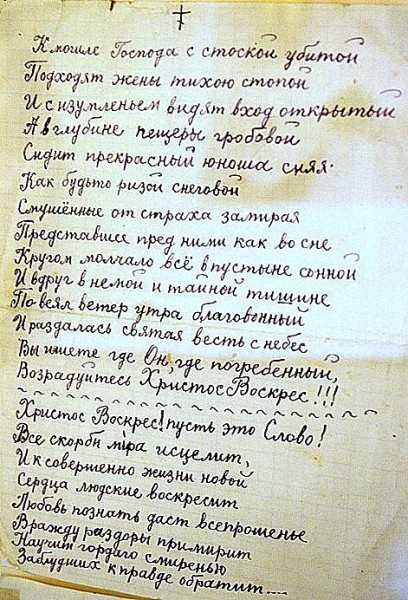 К могиле Господа с стоской убитой
Подходят жены тихою стопой
И с изумленьем видят вход открытый
А в глубине пещеры гробовой
Сидит прекрасный юноша сияя.
Как будьто ризой снеговой
Смушённые от страха замирая
Представшие пред ними как во сне
Кругом молчало всё в пустыне сонной
И вдруг в немой и тайной тишине
Повеял ветер утра благовонный
И раздалась святая весть с небес
Вы ищете где Он, где погребенный,
Возрадуйтесь Христос Воскрес!!!
Христос Воскрес! пусть это Слово!
Все скорби мiра исцелит,
И к совершенно жизни новой
Сердца людские воскресит
Любовь познать даст всепрошенье
Вражду раздоры примирит
Научит гордаго смиренью
Заблудших к правде обратит....